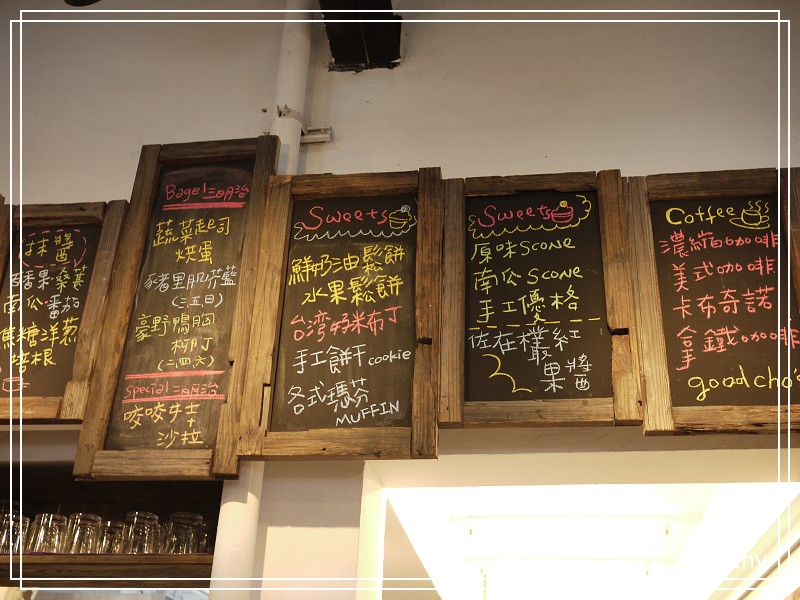 抹醬
百香果桑葚
南瓜番茄
焦糖洋蔥
培根
Bagel 三明治
蔬菜起司
烘蛋
豬里肌芥藍
(三.五.日)
豪野鴨胸
柳丁
(二.四.六)
special 三明治
咬咬牛士
沙拉
Sweets
鮮奶油鬆餅
水果鬆餅
台湾奶米布丁
手工餅干 cookie
各式瑪芬
MUFFIN
Sweets
原味 scone
南瓜 scone
手工優格
佐在欉紅
果醬
Coffee
濃縮咖啡
美式咖啡
卡布奇諾
拿鐵咖啡
good cho'